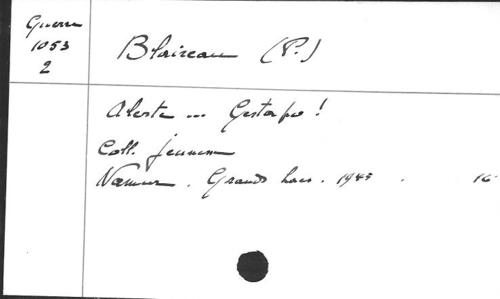 Guerre
1053
2
Blaireau (P.)
Alerte ... Gestapo !
Coll. jeunesse
Namur . Grands lacs . 1945 . 16